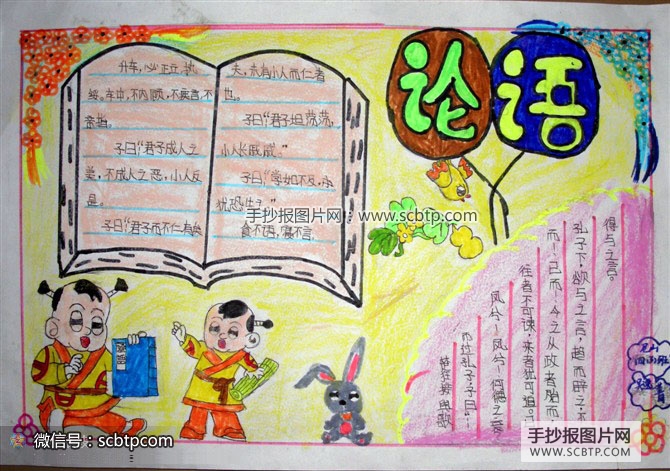 论语
升车,必正立,执
绥。车中,不内顾,不疾言,不
亲指。
子曰"君子成人之
美,不成人之恶,小人反
是。
子曰"君子而不仁有矣
夫,未有小人而仁者
也。
子曰"君子坦荡荡,
小人长戚戚。"
子曰"学如不及,
犹恐失之"
食不语,寝不言
楚狂接舆歌
而过孔子,子曰:
凤兮~凤兮~何德之衰
往者不可谏,来者犹可追,
而~已而~今之从政者殆而
孔子下,欲与之言,趋而辟之,不
得与之言。
手抄报图片网:www.scbtp.com
微信号:scbtpcom
手抄报图片网
WWW.SCBTP.COM